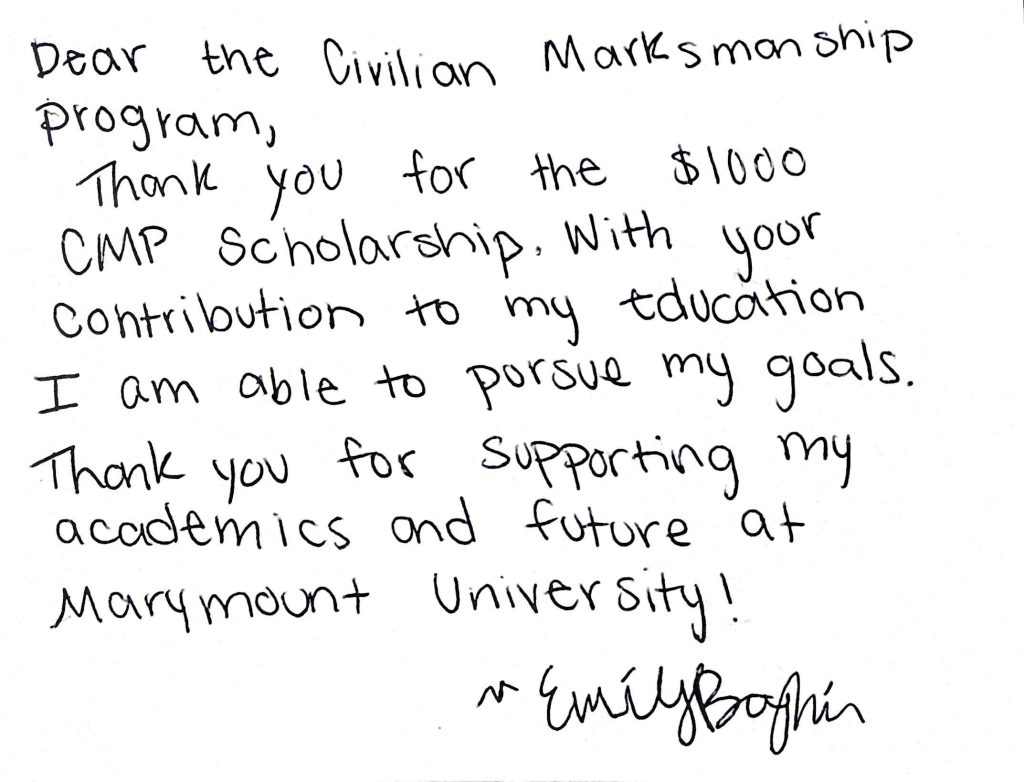 Dear the Civilian Marksmanship
program,
Thank you for the $1000
CMP Scholarship. With your
contribution to my education
I am able to porsue my goals.
Thank you for supporting my
academics and future at
Marymount University!
~ Emily